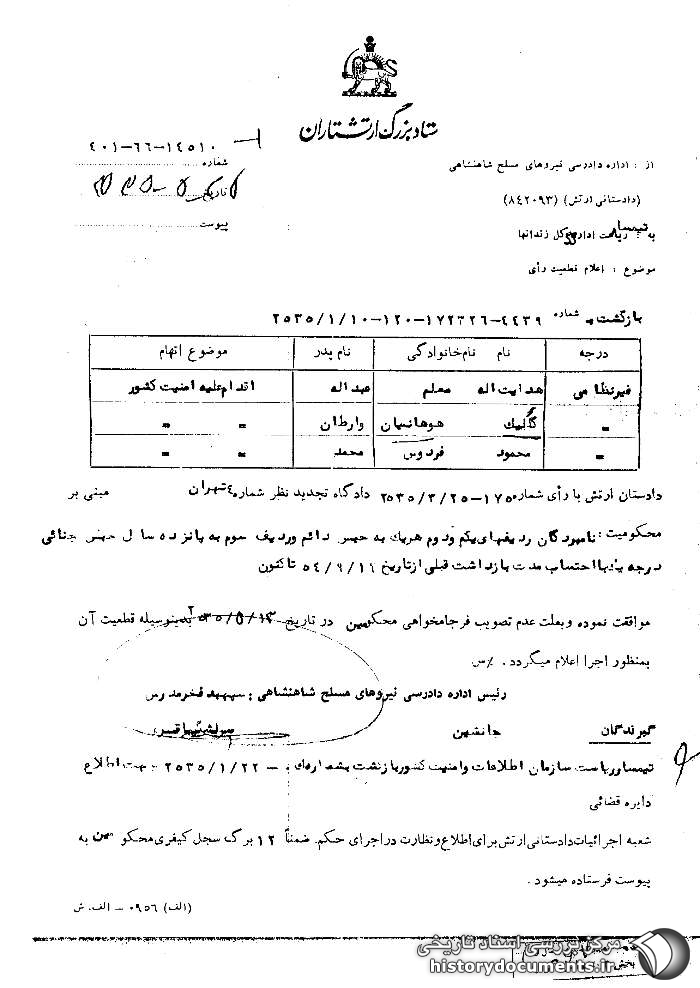 ستاد بزرگ ارتشتاران
۴۰۱-۶۶-۱۴۵۱۰
شماره
از : اداره دادرسی نیروهای مسلح شاهنشاهی
تاریخ
(دادستانی ارتش) (۸۴۲۰۹۳)
پیوست
به تیمسار ریاست اداره کل زندانها
موضوع : اعلام قطعیت رأی
بازگشت به شماره ۴۴۳۹-۱۷۲۳۲۶-۱۲۰-۲۵۳۵/۱/۱۰
درجه نام نام خانوادگی نام پدر موضوع اتهام
غیرنظامی هدایت اله معلم عبداله اقدام علیه امنیت کشور
" گاگیک هوهانسیان وارطان " "
" محمود فردوس محمد " "
دادستان ارتش با رأی شماره ۱۷۵-۲۵۳۵/۳/۲۵ دادگاه تجدید نظر شماره ۴ تهران مبنی بر
محکومیت : نامبردگان ردیفهای یکم و دوم هریک به حبس دائم وردیف سوم به پانزده سال حبس جنائی
درجه یک با احتساب مدت بازداشت قبلی از تاریخ ۵۴/۹/۱۶ تاکنون
موافقت نموده و بعلت عدم تصویب فرجامخواهی محکومین در تاریخ ۲۵۳۵/۵/۱۳ بدینوسیله قطعیت آن
بمنظور اجرا اعلام میگردد . /س
رئیس اداره دادرسی نیروهای مسلح شاهنشاهی : سپهبد فخرمدرس
گیرندگان جانشین
تیمسار ریاست سازمان اطلاعات وامنیت کشور بازگشت بشماره - ۲۵۳۵/۱/۲۲ جهت اطلاع
دایره قضائی
شعبه اجرائیات دادستانی ارتش برای اطلاع و نظارت در اجرای حکم . ضمناً ۱۲ برگ سجل کیفری محکومین به
پیوست فرستاده میشود .
(الف) ۰۹۵۶ - الف. ش
مرکز بررسی اسناد تاریخی
historydocuments.ir